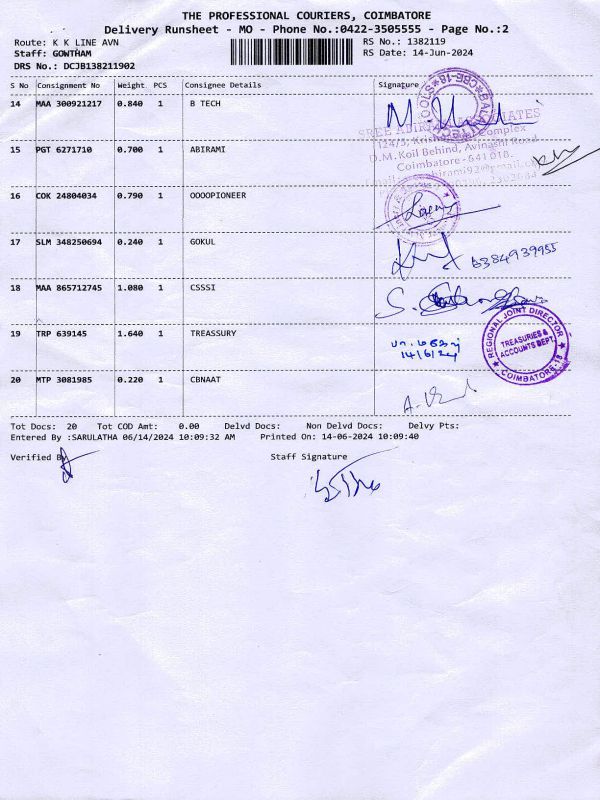 THE PROFESSIONAL COURIERS, COIMBATORE
Delivery Runsheet - MO - Phone No.:0422-3505555 - Page No.:2
Route: K K LINE AVN
RS No.: 1382119
Staff: GOWTHAM
RS Date: 14-Jun-2024
DRS No.: DCJB138211902
S No Consignment No Weight PCS Consignee Details Signature
14 MAA 300921217 0.840 1 B TECH
124/3, Krishna Complex
O.M. Koil Behind, Avinashi Road
Coimbatore - 641 018.
15 PGT 6271710 0.700 1 ABIRAMI
16 COK 24804034 0.790 1 OOOOPIONEER
17 SLM 348250694 0.240 1 GOKUL
6384939955
18 MAA 865712745 1.080 1 CSSSI
19 TRP 639145 1.640 1 TREASSURY
14/6/24
REGIONAL JOINT DIRECTOR
TREASURIES &
ACCOUNTS DEPT.
COIMBATORE-18
20 MTP 3081985 0.220 1 CBNAAT
Tot Docs: 20 Tot COD Amt: 0.00 Delvd Docs: Non Delvd Docs: Delvy Pts:
Entered By :SARULATHA 06/14/2024 10:09:32 AM Printed On: 14-06-2024 10:09:40
Verified By
Staff Signature